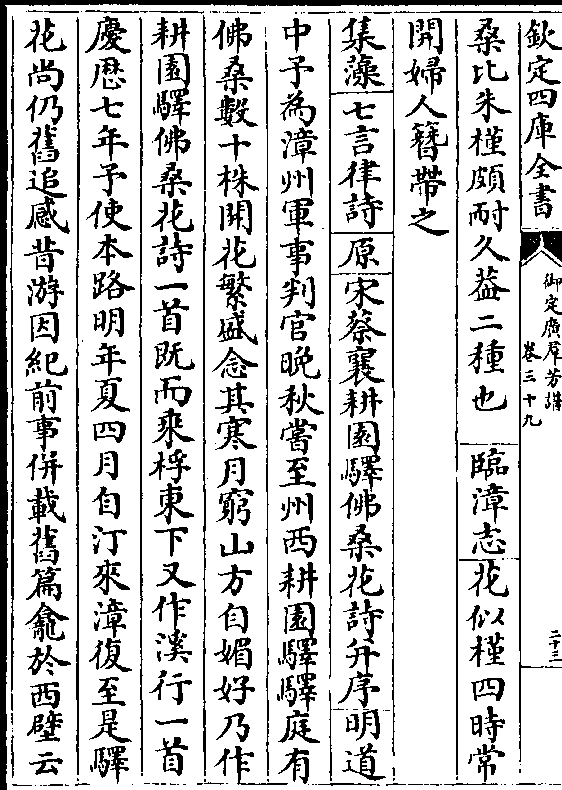 欽定四庫全書
御定廣羣芳譜
卷三十九
二十三
桑比朱槿頗耐久葢二種也 臨漳志 花似槿四時常
開婦人簪帶之
集藻 七言律詩 原 宋蔡襄耕園驛佛桑花詩并序 明道
中予為漳州軍事判官晚秋嘗至州西耕園驛驛庭有
佛桑數十株開花繁盛念其寒月窮山方自媚好乃作
耕園驛佛桑花詩一首既而來桴東下又作溪行一首
慶厯七年予使本路明年夏四月自汀來漳復至是驛
花尚仍舊追感昔游因紀前事併載舊篇龕於西壁云